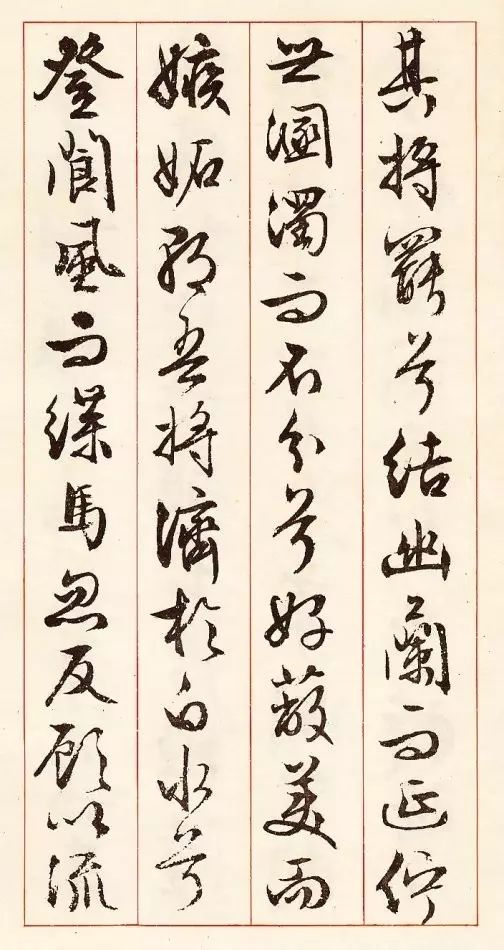 其將罷兮結幽蘭而延佇
世溷濁而不分兮好蔽美而
嫉妒朝吾將濟於白水兮
登閬風而緤馬忽反顧以流